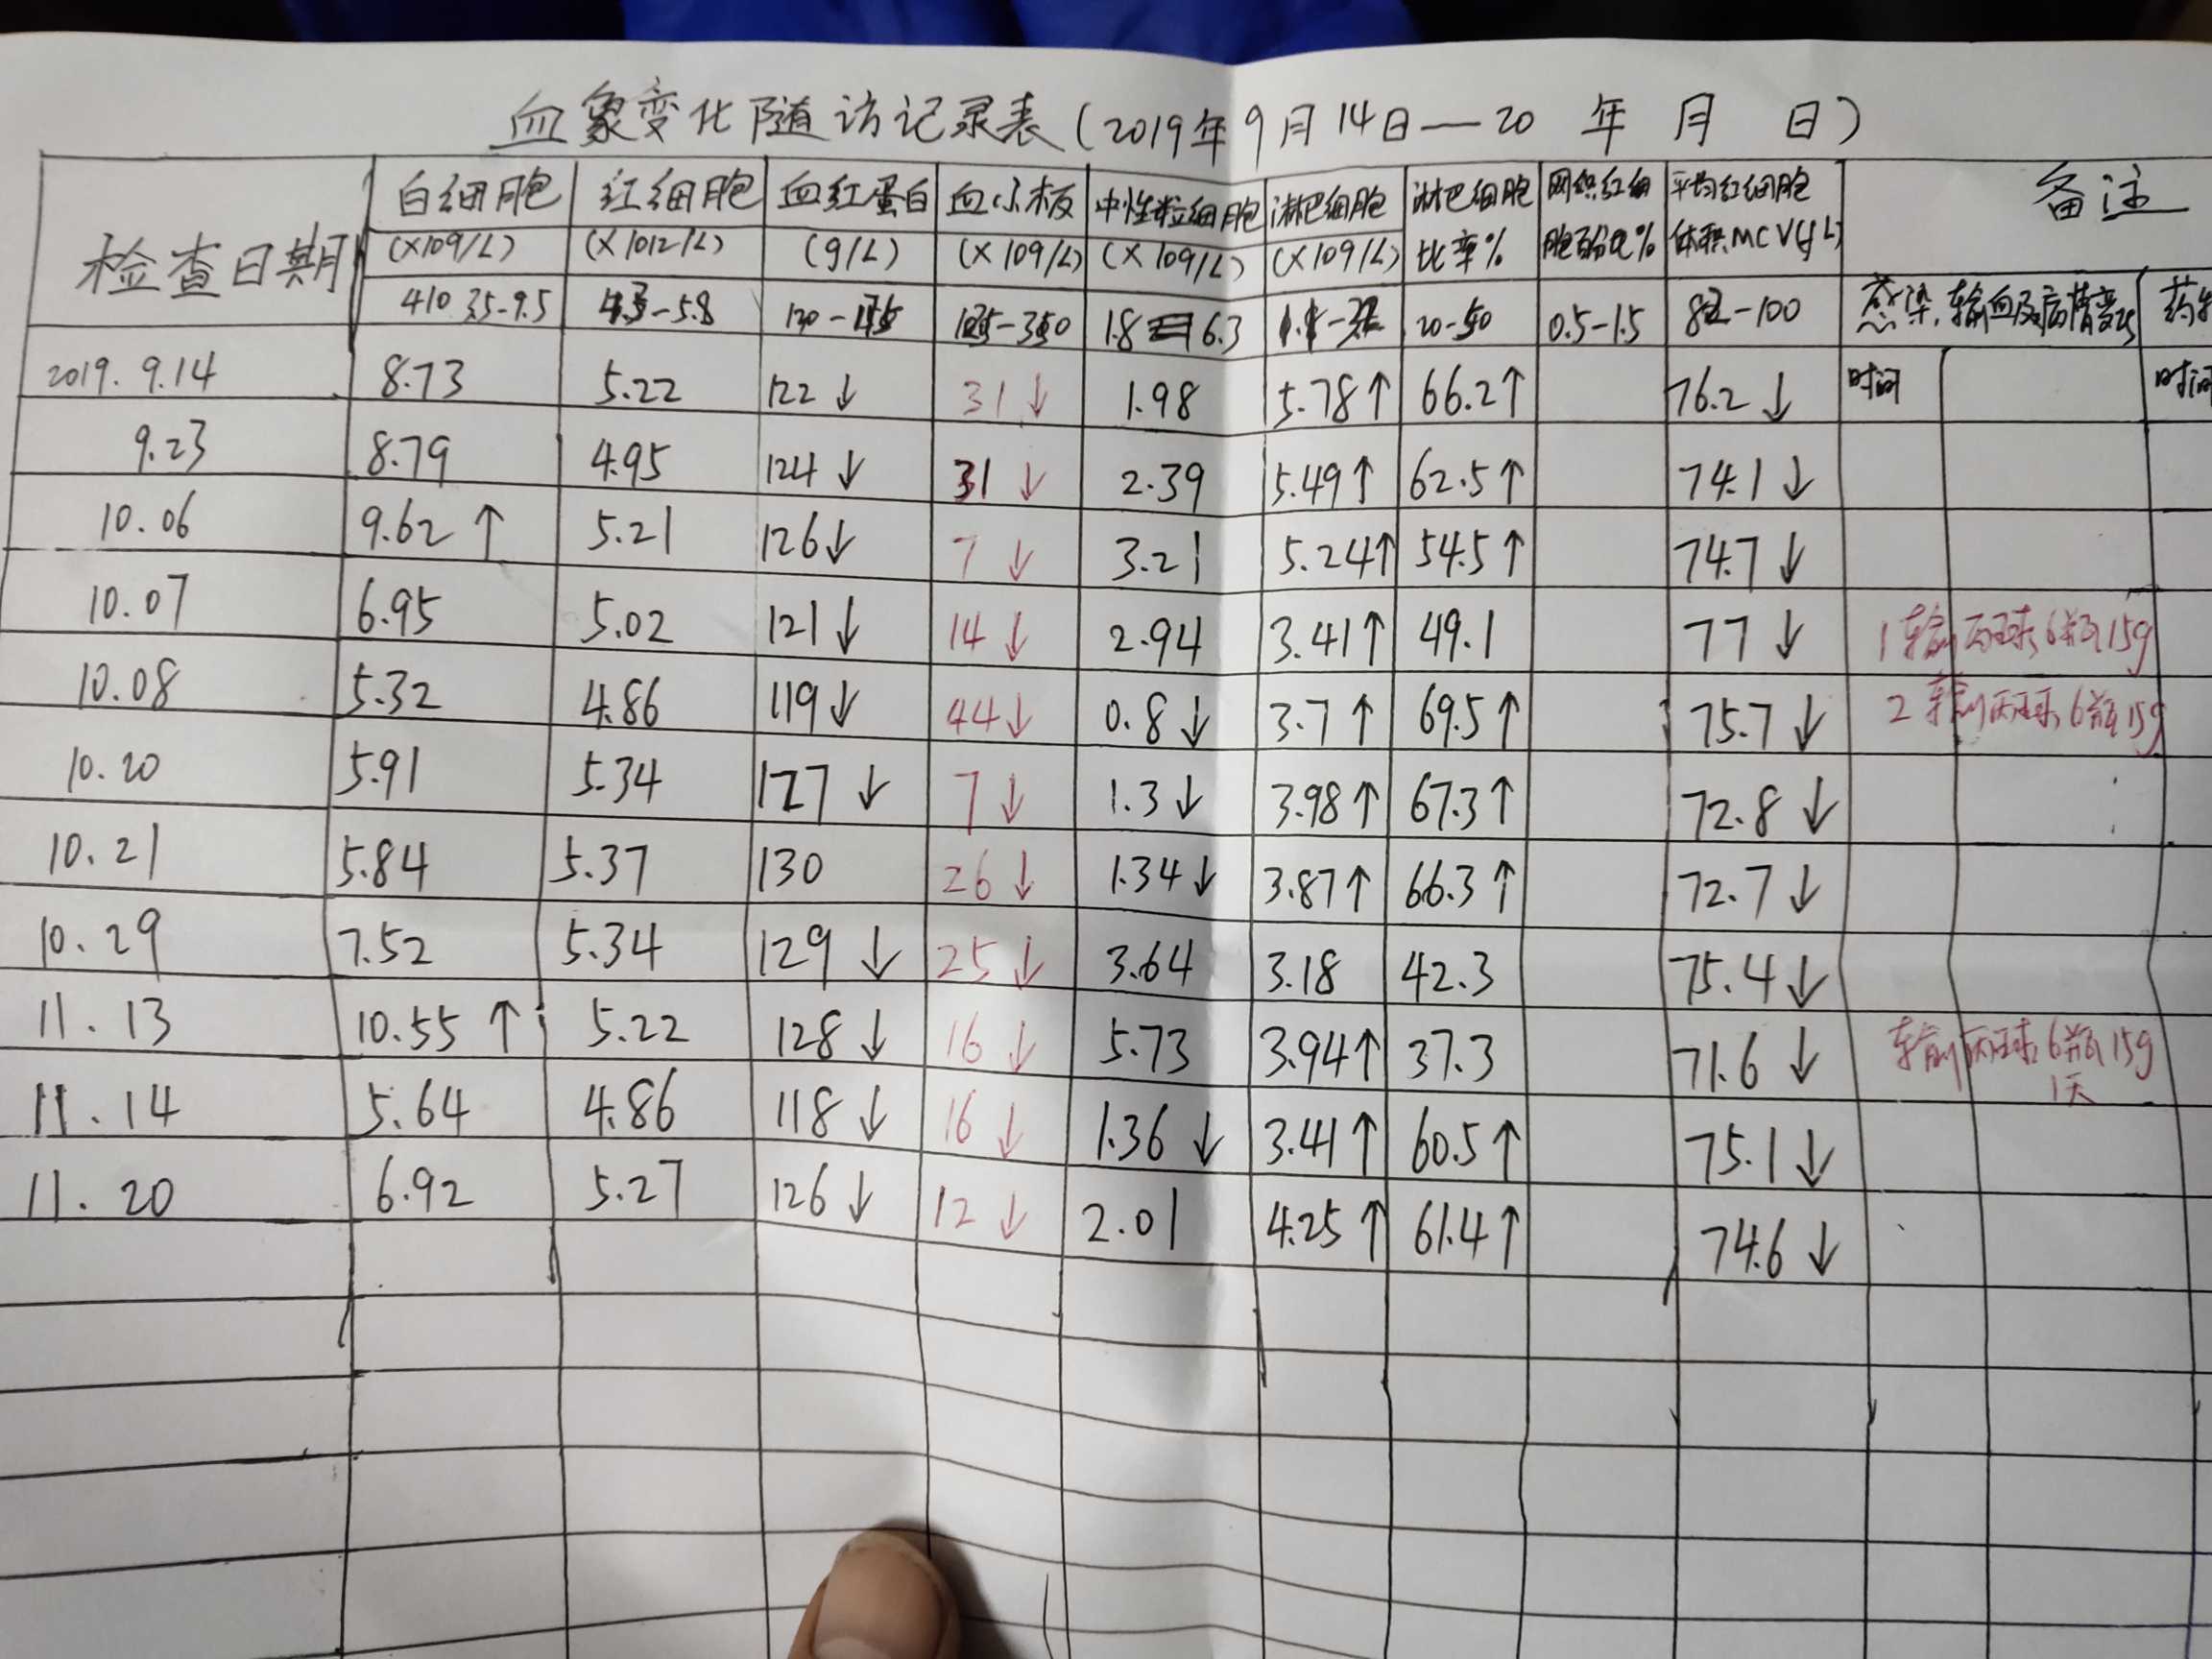 血象变化随访记录表(2019年9月14日—20 年 月 日)
检查日期 白细胞 红细胞 血红蛋白 血小板 中性粒细胞 淋巴细胞 淋巴细胞比率% 网织红细胞百分比% 平均红细胞体积MCV(fL) 备注
(X109/L) (X1012/L) (g/L) (X109/L) (X109/L) (X109/L)
3.5-9.5 4.3-5.8 120- 125-350 1.8 6.3 20-50 0.5-1.5 82-100 感染,输血及病情变化
2019.9.14 8.73 5.22 122↓ 31↓ 1.98 5.78↑ 66.2↑ 76.2↓ 时间 时间
9.23 8.79 4.95 124↓ 31↓ 2.39 5.49↑ 62.5↑ 74.1↓
10.06 9.62↑ 5.21 126↓ 7↓ 3.21 5.24↑ 54.5↑ 74.7↓
10.07 6.95 5.02 121↓ 14↓ 2.94 3.41↑ 49.1 77↓ 1输丙球,6瓶15g
10.08 5.32 4.86 119↓ 44↓ 0.8↓ 3.7↑ 69.5↑ 75.7↓ 2输丙球,6瓶15g
10.20 5.91 5.34 127↓ 7↓ 1.3↓ 3.98↑ 67.3↑ 72.8↓
10.21 5.84 5.37 130 26↓ 1.34↓ 3.87↑ 66.3↑ 72.7↓
10.29 7.52 5.34 129↓ 25↓ 3.64 3.18 42.3 75.4↓
11.13 10.55↑ 5.22 128↓ 16↓ 5.73 3.94↑ 37.3 71.6↓ 输丙球,6瓶15g
1天
11.14 5.64 4.86 118↓ 16↓ 1.36↓ 3.41↑ 60.5↑ 75.1↓
11.20 6.92 5.27 126↓ 12↓ 2.01 4.25↑ 61.4↑ 74.6↓